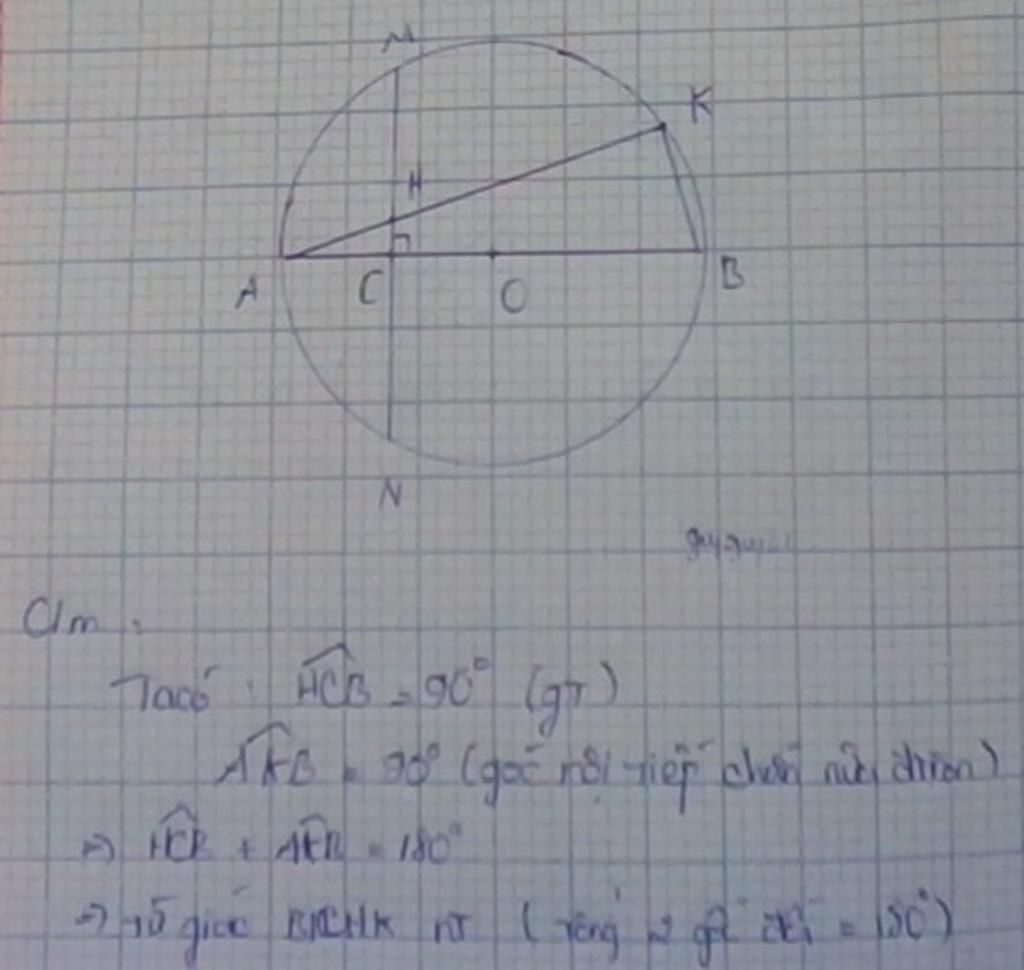 M
K
H
A
C
O
B
N
C/m :
Ta có : HCB = 90° (gt)
AKB = 90° (góc nội tiếp chắn nửa đường tròn)
=> HCB + AKB = 180°
=> Tứ giác BCHK nt ( tổng 2 góc đối = 180°)